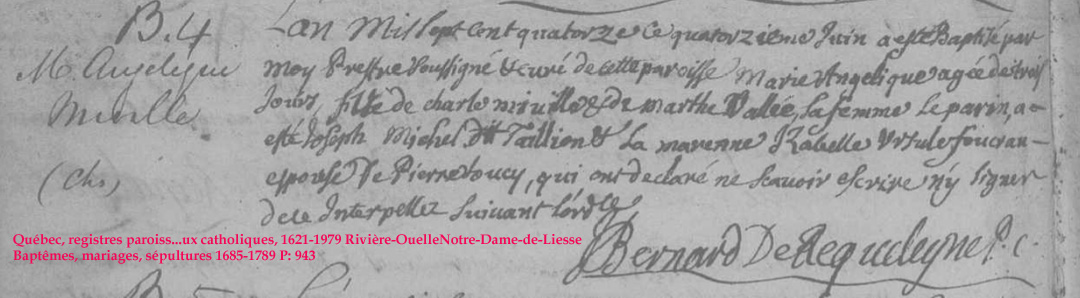 B. 4
M. Angelique
Miville
(Chs)
L'an Mil Sept Cent quatorze Ce quatorzieme Juin a este Baptisé par
moy Prestre Soussigné & curé de cette paroisse Marie Angelique agée de trois
Jours, fille de charle miville & de marthe Vallée, sa femme Le parin, a
esté Joseph Michel dtt Taillion & La marenne Izabelle Ursule foucrau
espouse De Pierre Soucy, qui ont declaré ne scavoir escrire ny signer
de ce Interpellez suivant l'ordce,
Bernard De Requeleyne P. C.
Québec, registres paroiss...ux catholiques, 1621-1979 Rivière-OuelleNotre-Dame-de-Liesse
Baptêmes, mariages, sépultures 1685-1789 P: 943